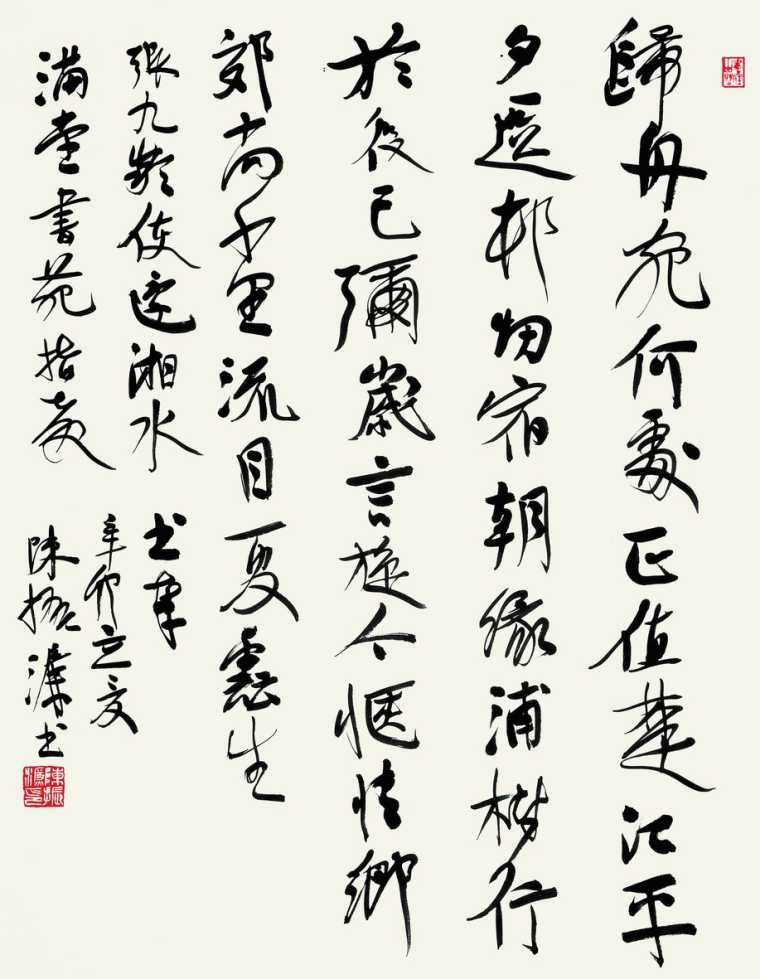 歸舟宛何處正值楚江平
夕逗邨烟宿朝緣浦樹行
於役已彌歲言旋今愜情鄉
郊尚千里流目夏雲生
張九齡使還湘水書奉
滿堂書苑指教
辛卯立夏
陳振濂書
陳振濂印